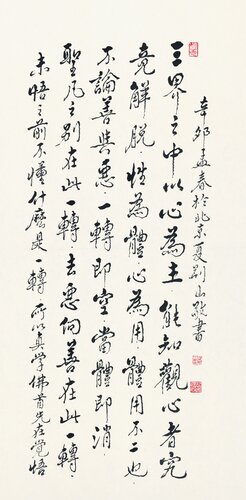 三界之中以心為主能知觀心者究
竟解脫性為體心為用體用不二也
不論善與惡一轉即空當體即消
聖凡之別在此一轉去惡向善在此一轉
未悟之前不懂什麼是一轉所以真學佛首先在覺悟
辛卯孟春於北京夏荆山敬書